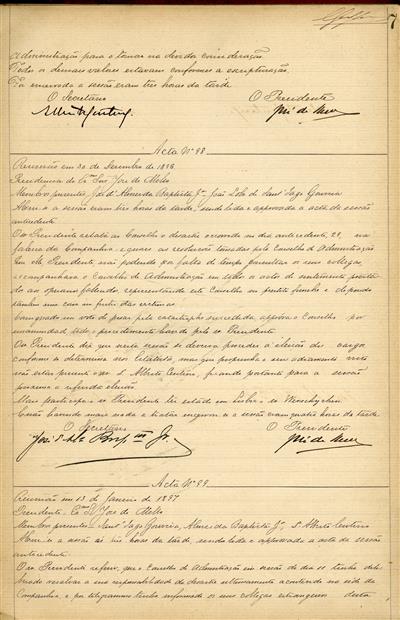 7
Administração para o tomar na devida consideração.
Todos os demais valores estavam conformes a escripturação.
Foi encerrada a sessão eram tres horas da tarde
O Secretario O Presidente
José de Mello
Acta Nº 98
Reunião em 30 de Dezembro de 1896
Presidencia do Exmo Snr José de Mello
Membros presentes, José d'Almeida Baptista Jr, João
Abriu-se a sessão eram tres horas da tarde, sendo lida e approvada a acta da sessão
antecedente
O Sr Presidente relata ao Conselho o desastre ocorrido no dia antecedente, 29, na
fabrica da Companhia e quaes as resoluções tomadas pelo Conselho de Administração
Que elle Presidente não podendo por falta de tempo consultar os seus collegas,
acompanhara o Conselho de Administração em todos os actos de sentimento
representando este Conselho no prestito funebre e depondo
tambem uma coroa no funeral das victimas
Consignado um voto de pezar pela catastrophe succedida, approva o Conselho por
unanimidade todo o procedimento havido pelo Sr Presidente
O Sr Presidente diz que nesta sessão se deveria proceder á eleição dos cargos
conforme o determina os Estatutos, mas que propunha o seu adiamento visto
não estar presente o Sr S. Alberto Centeno, ficando portanto para a sessão
proxima a referida eleição.
Mais participa o Sr Presidente ter estado em Lisboa o Sr
E não havendo mais nada a tratar encerrou-se a sessão eram quatro horas da tarde
O Secretario O Presidente
José de Mello
Acta Nº 99
Reunião em 13 de Janeiro de 1897
Presidente, Exmo Sr José de Mello
Membros presentes, Gouveia, Almeida Baptista Jr, S. Alberto Centeno
Abriu-se a sessão ás tres horas da tarde, sendo lida e approvada a acta da sessão
antecedente
O Sr Presidente referiu, que o Conselho de Administração em sessão do dia 10 tinha
resolvido a sua responsabilidade do desastre ultimamente acontecido na séde da
Companhia, e por telegramma tinha informado os seus collegas estrangeiros desta